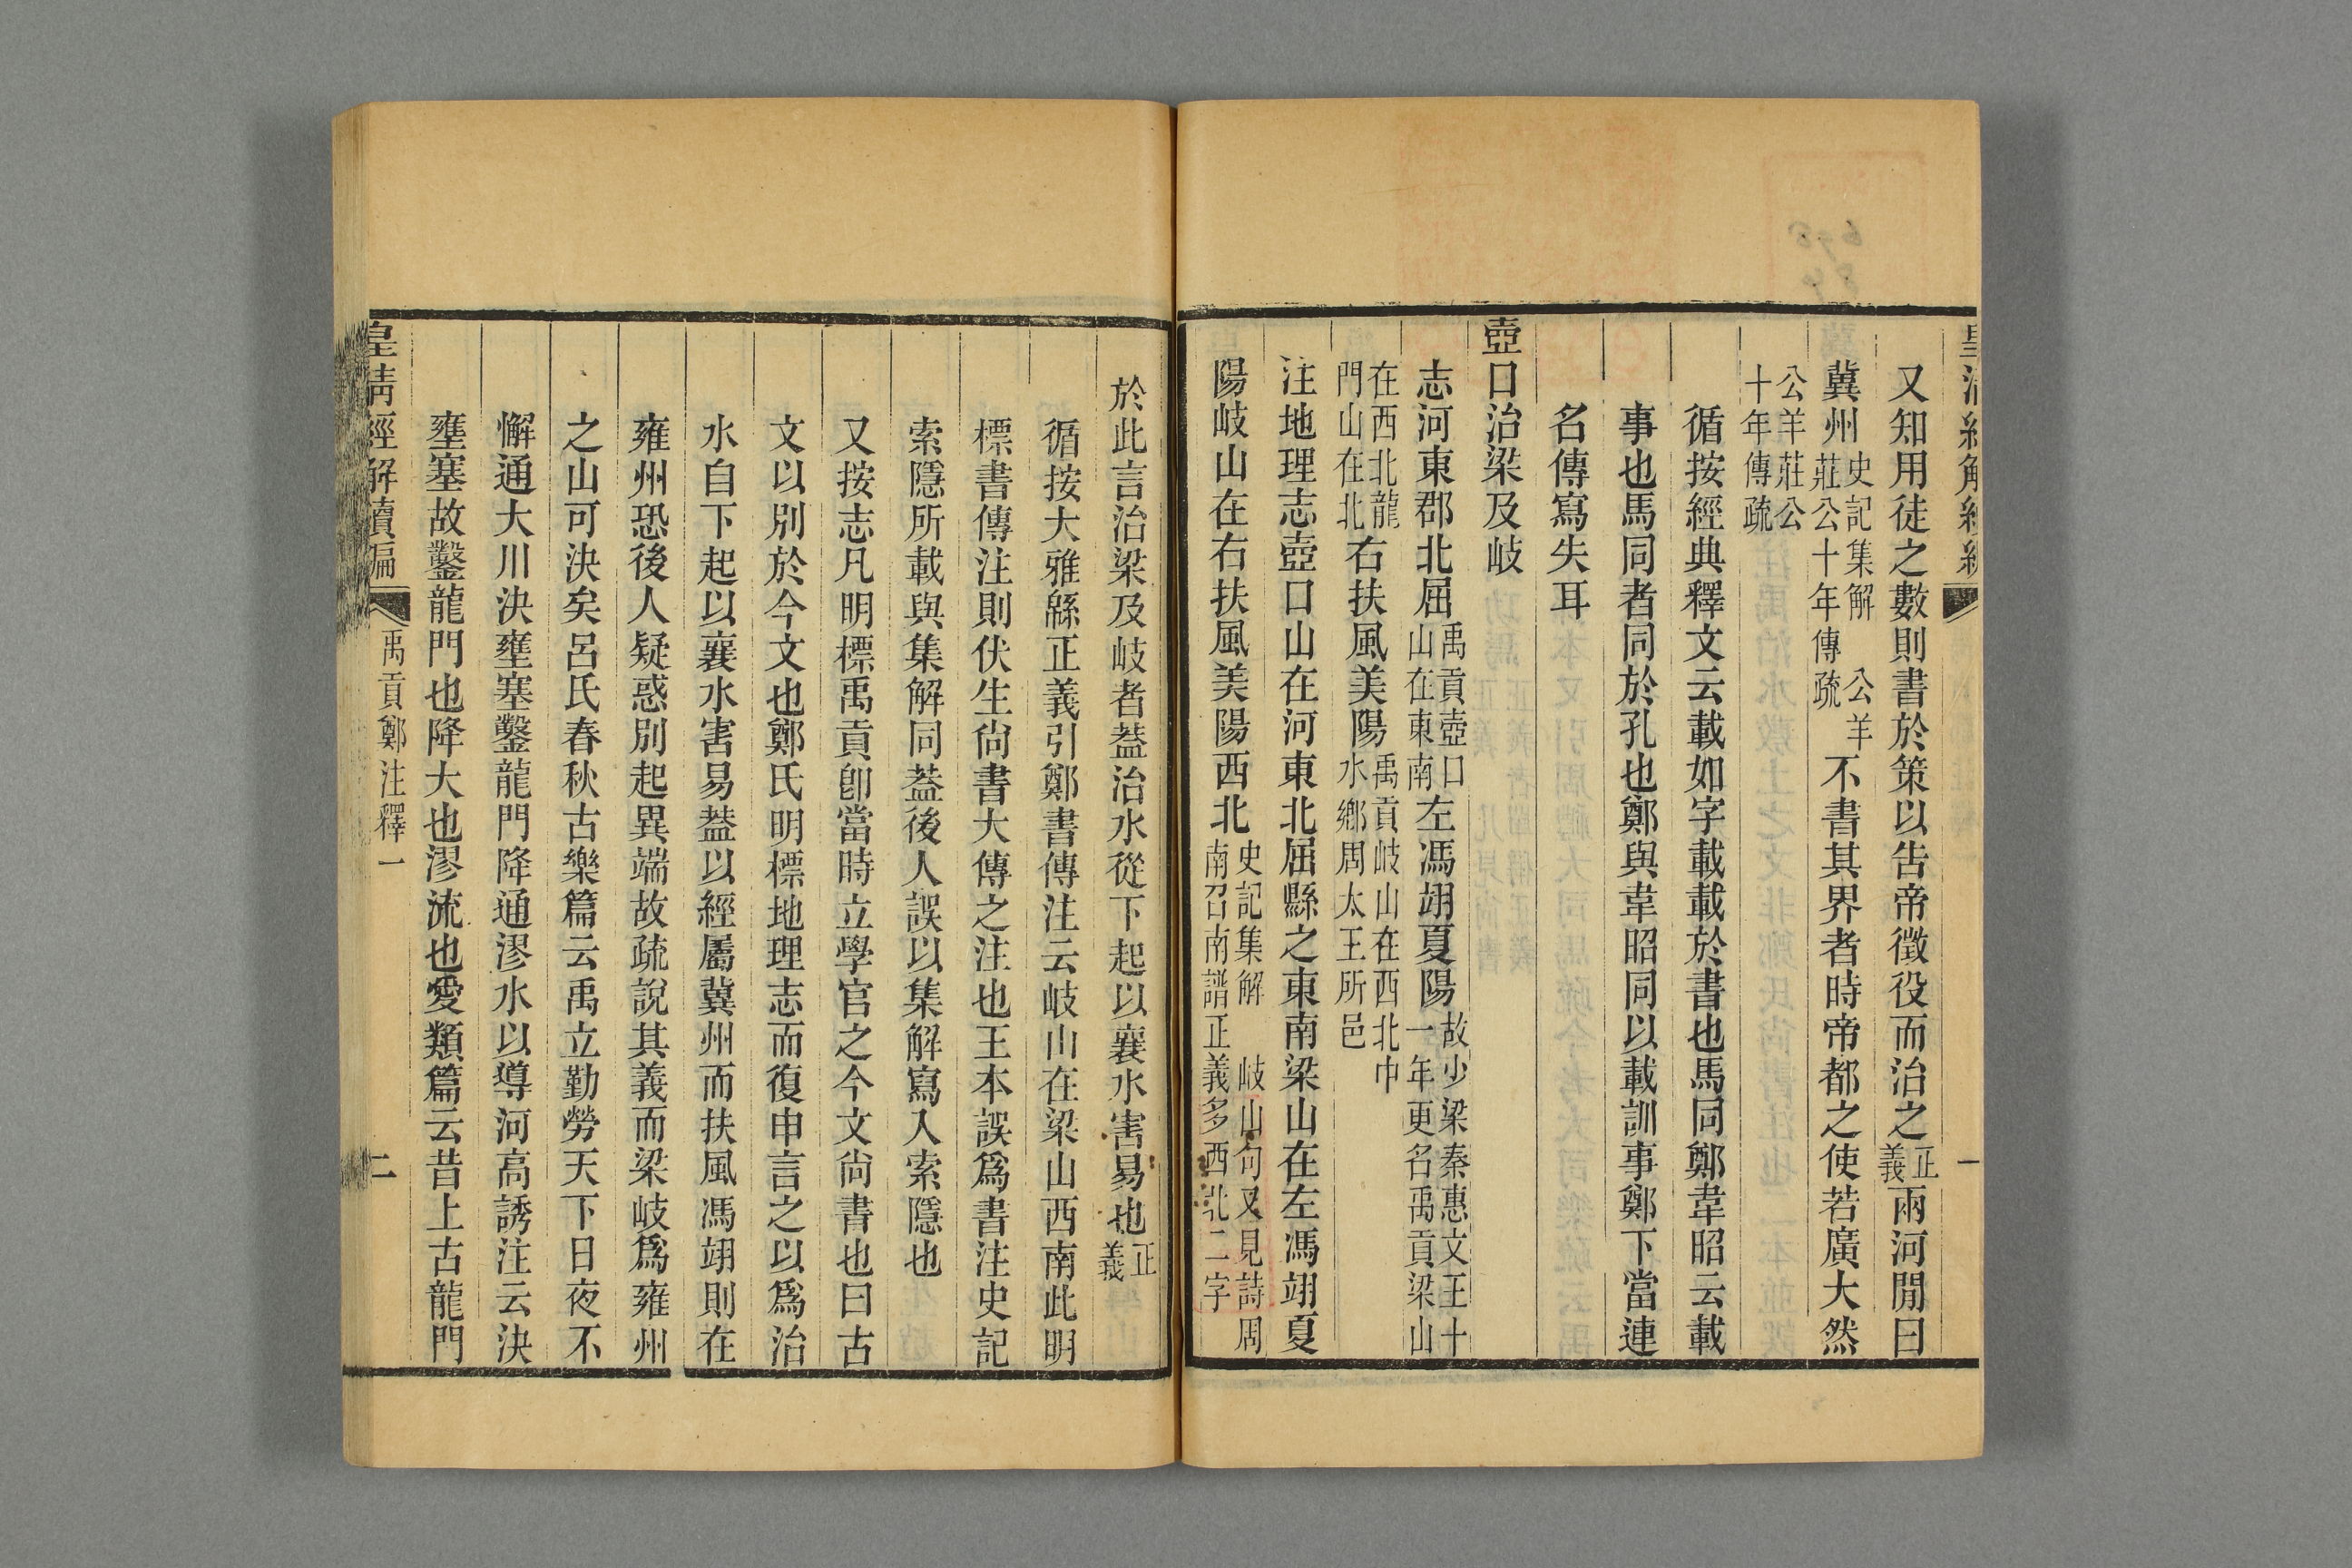 又知用徒之數則書於策以告帝徵役而治之正義兩河閒曰
冀州史記集解 公羊莊公十年傳疏不書其界者時帝都之使若廣大然
公羊莊公十年傳疏
循按經典釋文云載如字載載於書也馬同鄭韋昭云載
事也馬同者同於孔也鄭與韋昭同以載訓事鄭下當連
名傳寫失耳
壺口治梁及岐
志河東郡北屈禹貢壺口山在東南左馮翊夏陽故少梁秦惠文王十一年更名禹貢梁山
在西北龍門山在北右扶風美陽禹貢岐山在西北中水鄉周太王所邑
注地理志壺口山在河東北屈縣之東南梁山在左馮翊夏
陽岐山在右扶風美陽西北史記集解 岐山句又見詩周南召南譜正義多西北二字
於此言治梁及岐者葢治水從下起以襄水害易也正義
循按大雅緜正義引鄭書傳注云岐山在梁山西南此明
標書傳注則伏生尙書大傳之注也王本誤爲書注史記
索隱所載與集解同葢後人誤以集解寫入索隱也
又按志凡明標禹貢卽當時立學官之今文尙書也曰古
文以別於今文也鄭氏明標地理志而復申言之以爲治
水自下起以襄水害易葢以經屬冀州而扶風馮翊則在
雍州恐後人疑惑別起異端故疏說其義而梁岐爲雍州
之山可決矣呂氏春秋古樂篇云禹立勤勞天下日夜不
懈通大川決壅塞鑿龍門降通漻水以導河高誘注云決
壅塞故鑿龍門也降大也漻流也愛類篇云昔上古龍門
皇清經解續編 禹貢鄭注釋一 二